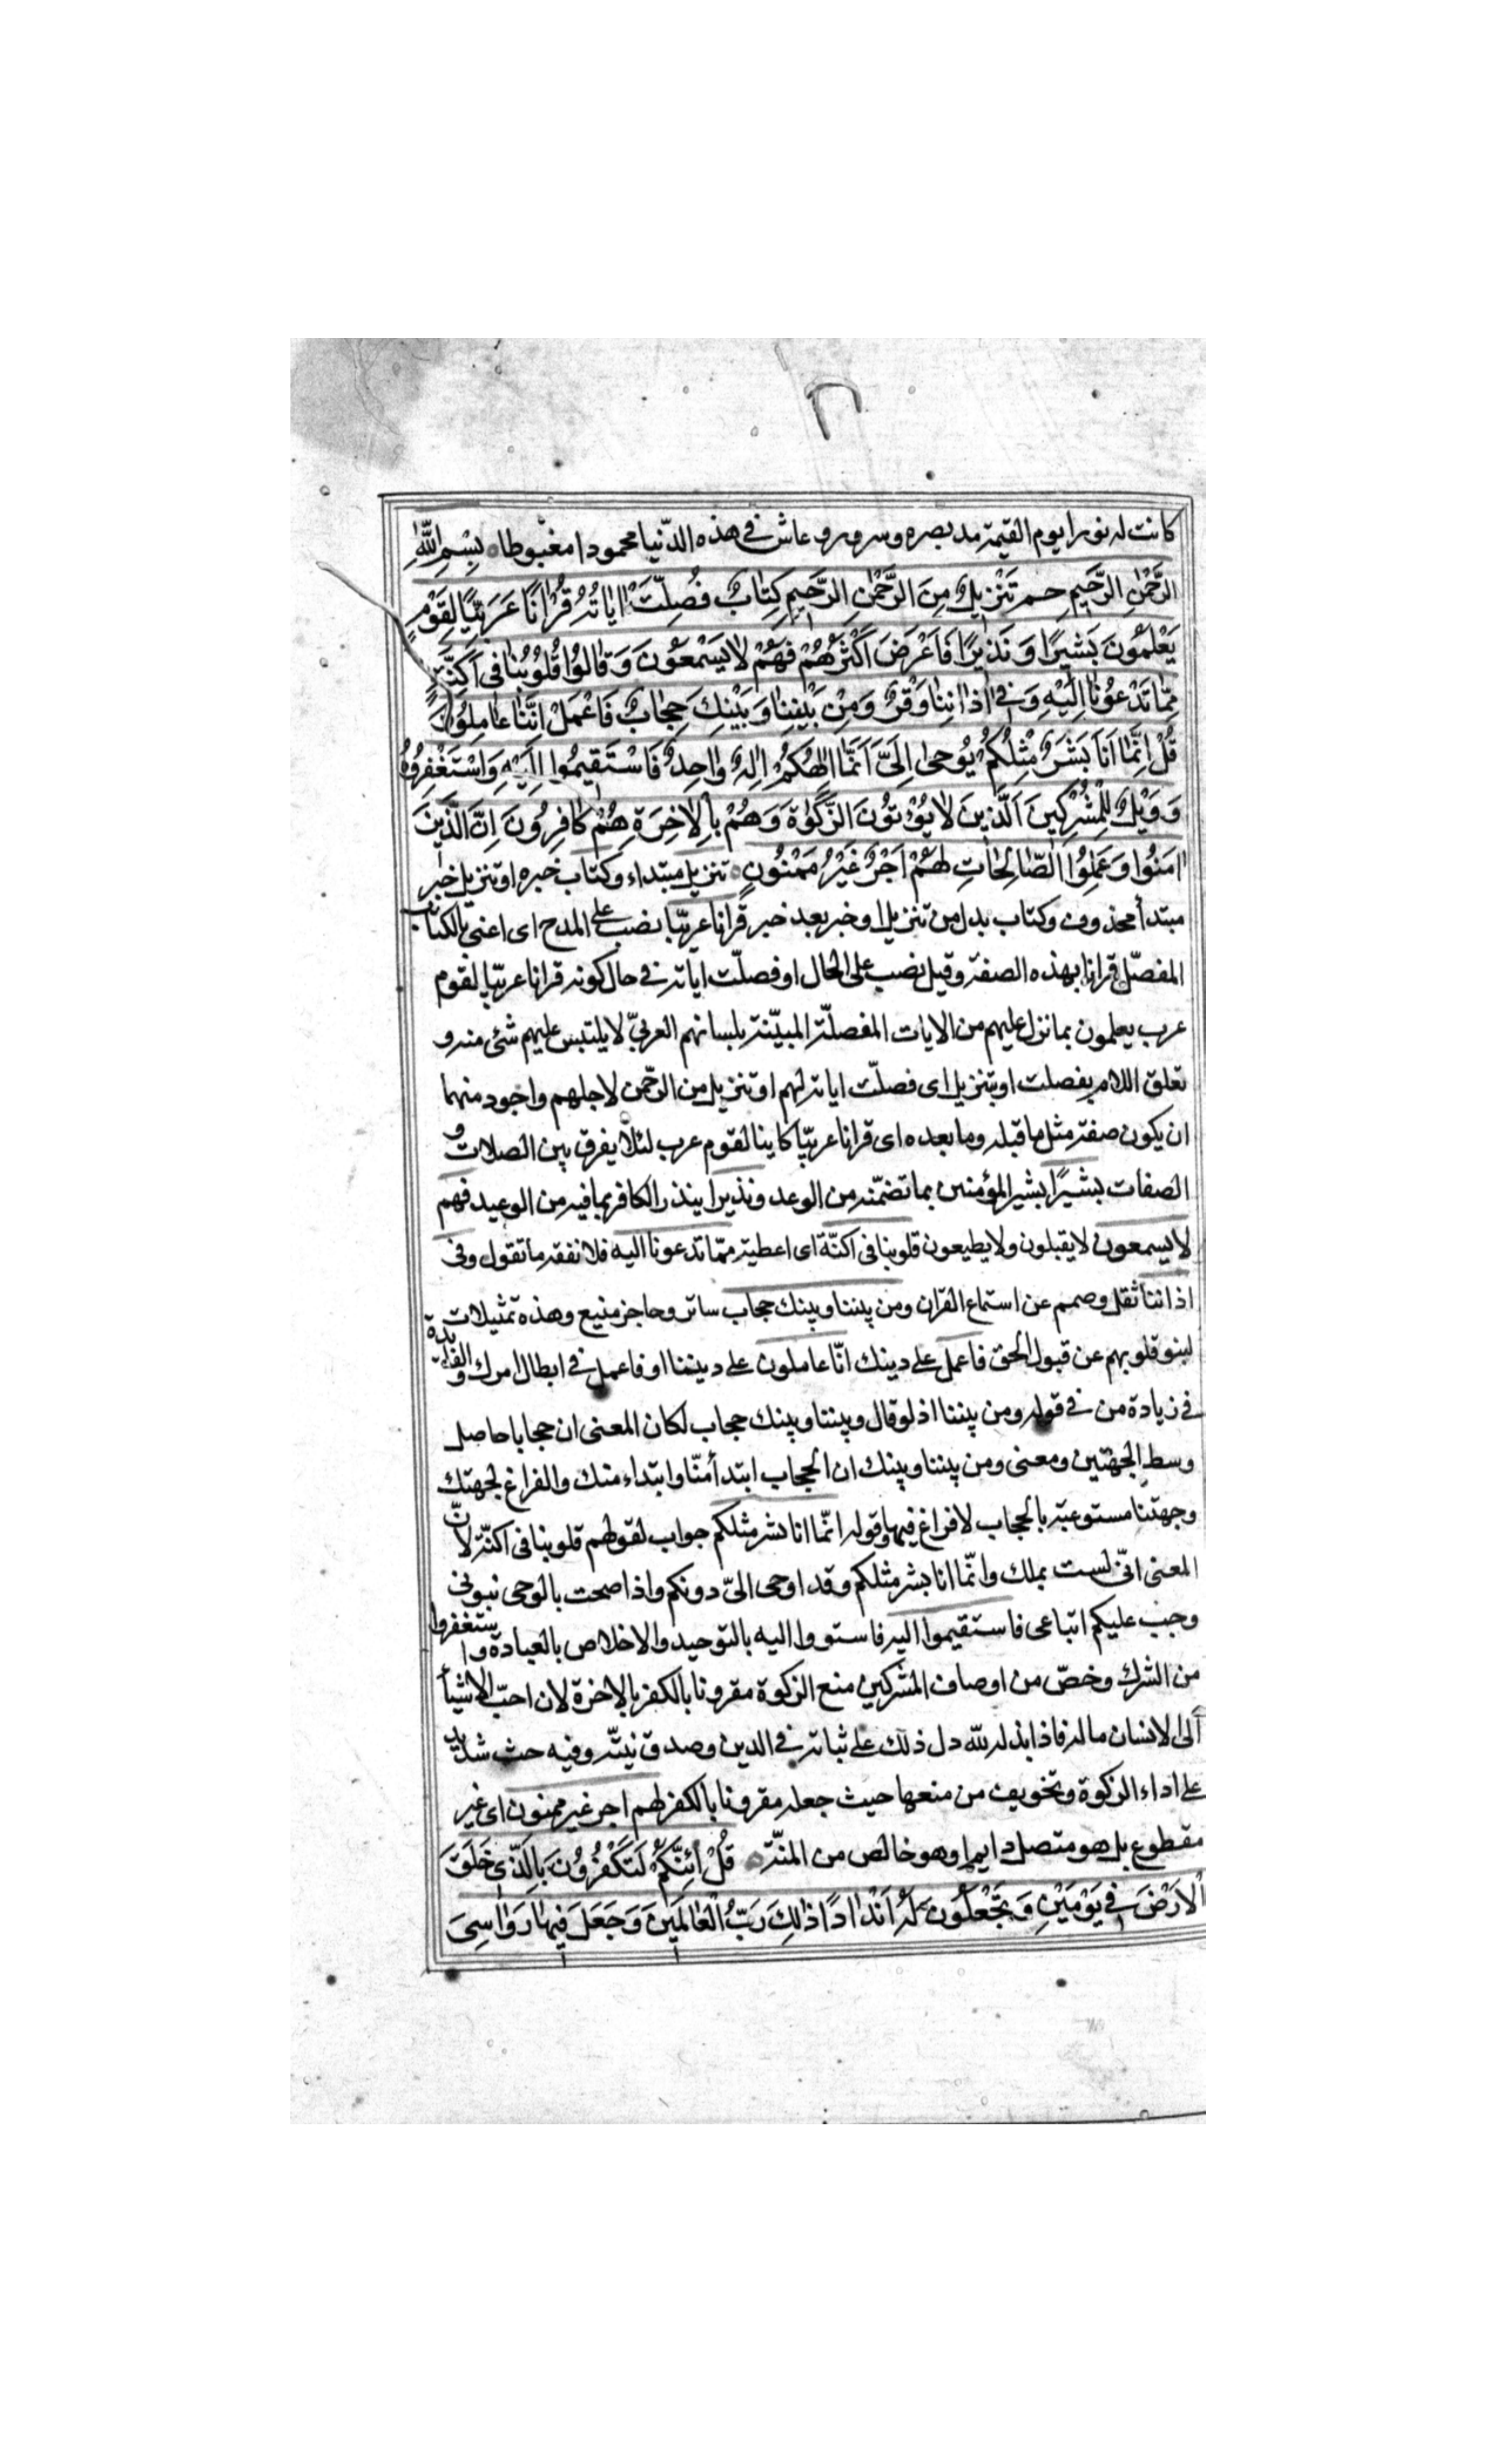 كانت له نورا يوم القيمة مد بصره وسرور وعاش في هذه الدّنيا محمودا مغبوطا بِسْمِ اللّٰهِ
الرَّحْمٰنِ الرَّحيمِ حم تَنْزيلٌ مِنَ الرَّحْمٰنِ الرَّحيمِ كِتٰابٌ فُصِّلَتْ اٰيٰاتُهُ قُرْاٰنًا عَرَبِيًّا لِقَوْمٍ
يَعْلَمُونَ بَشيرًا وَنَذيرًا فَاَعْرَضَ اَكْثَرُهُمْ فَهُمْ لا يَسْمَعُونَ وَقٰالُوا قُلُوبُنٰا فى اَكِنَّةٍ
مِمّٰا تَدْعُونٰا اِلَيْهِ وَفى اٰذٰانِنٰا وَقْرٌ وَمِنْ بَيْنِنٰا وَبَيْنِكَ حِجٰابٌ فَاعْمَلْ اِنَّنٰا عٰامِلُونَ
قُلْ اِنَّمٰا اَنَا بَشَرٌ مِثْلُكُمْ يُوحىٰ اِلَىَّ اَنَّمٰا اِلٰهُكُمْ اِلٰهٌ وٰاحِدٌ فَاسْتَقيمُوا اِلَيْهِ وَاسْتَغْفِرُوهُ
وَوَيْلٌ لِلْمُشْرِكينَ اَلَّذينَ لٰا يُؤْتُونَ الزَّكٰوةَ وَهُمْ بِالْاٰخِرَةِ هُمْ كٰافِرُونَ اِنَّ الَّذينَ
اٰمَنُوا وَعَمِلُوا الصّٰالِحٰاتِ لَهُمْ اَجْرٌ غَيْرُ مَمْنُونٍ تنزيل مبتداء وكتاب خبره او تنزيل خبر
مبتدأ محذوف وكتاب بدل من تنزيل او خبر بعد خبر قرانا عربيّا نصب على المدح اى اعنى بالكتاب
المفصّل قرانا بهذه الصفة وقيل نصب على الحال او فصلّت اياته في حال كونه قرانا عربيّا لقوم
عرب يعلمون بما نزل عليهم من الايات المفصلّة المبيّنة بلسانهم العربىّ لا يلتبس عليهم شئ منه و
تعلق اللام بفصلت او بتنزيل اى فصلّت اياته لهم او تنزيل من الرحّمن لاجلهم واجود منهما
ان يكون صفة مثل ما قبله وما بعده اى قرانا عربيّا كاينا لقوم عرب لئلّا يفرق بين الصلات و
الصفات بشيرًا بشير المؤمنين بما تضمّنه من الوعد ونذيرا ينذر الكافر بما فيه من الوعيد فهم
لا يسمعون لا يقبلون ولا يطيعون قلوبنا فى اكنّة اى اعطية ممّا تدعونا اليه فلا نفقه ما تقول وفى
اذاننا ثقل وصمم عن استماع القران ومن بيننا وبينك حجاب ساتر وحاجز منيع وهذه تمثيلات
لنبو قلوبهم عن قبول الحق فاعمل على دينك انّا عاملون على ديننا او فاعمل في ابطال امرك والفايدة
في زيادة من في قوله ومن بيننا اذ لو قال وبيننا وبينك حجاب لكان المعنى ان حجابا حاصل
وسط الجهتين ومعنى ومن بيننا وبينك ان الحجاب ابتدأ منّا وابتداء منك والفراغ لجهتك
وجهتنا مستوعبة بالحجاب لا فراغ فيها وقوله انّما انا بشر مثلكم جواب لقولهم قلوبنا فى اكنّة لانّ
المعنى انّى لست بملك وانّما انا بشر مثلكم وقد اوحى الىّ دونكم واذا صحت بالوحى نبوتى
وجب عليكم اتباعى فاستقيموا اليه فاستووا اليه بالتوحيد والاخلاص بالعبادة واستغفروا
من الشرك وخصّ من اوصاف المشركين منع الزكوة مقرونا بالكفر بالاخرة لان احبّ الاشيأ
الى الانسان ماله فاذا بذله لله دل ذلك على ثباته في الدين وصدق نيتّه وفيه حث شديد
على اداء الزكوة وتخويف من منعها حيث جعله مقرونا بالكفر لهم اجر غير ممنون اى غير
مقطوع بل هو متصل دايم او هو خالص من المنّة قُلْ اَئِنَّكُمْ لَتَكْفُرُونَ بِالَّذى خَلَقَ
الْاَرْضَ فى يَوْمَيْنِ وَتَجْعَلُونَ لَهُ اَنْدٰادًا ذٰلِكَ رَبُّ الْعٰالَمينَ وَجَعَلَ فيهٰا رَوٰاسِىَ